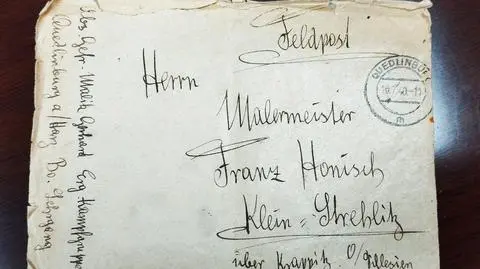 Feldpost
QUEDLINBURG
Herrn
Malermeister
Franz Honisch
Klein=Strehlitz
über Krappitz O/Schlesien
Gefr. Malik Gerhard Erg Kampfgruppe
Quedlinburg a/Harz Bo. Lehrgang